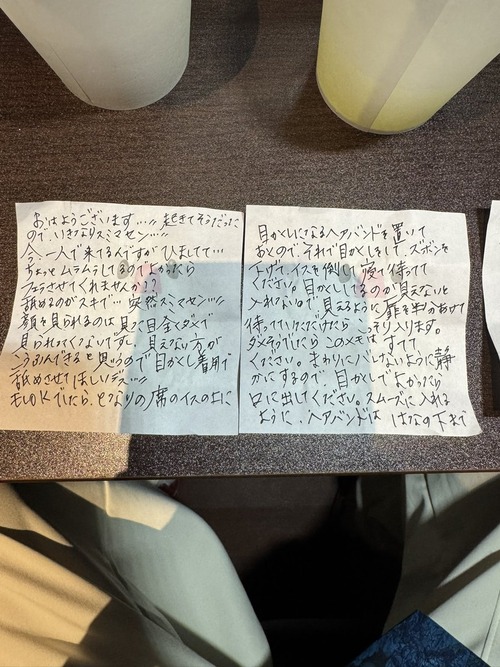 おはようございます…!! 起きてそうだった
ので、いきなりスミマセン…!!
今一人で来てるんですが ひましてて…
ちょっと ムラムラしてるのでよかったら
フェラさせてくれませんか??
舐めるのがスキで… 突然スミマセン…!!
顔を見られるのは 見た目全くダメで
見られたくないですし、見えない方が
こうふんできると思うので 目かくし着用で
舐めさせてほしいデス…!!
もしOKでしたら、となりの席のイスの上に
目かくしになるヘアバンドを置いて
おくので、それで目かくしをして、ズボンを
下げて、イスを倒して寝て待ってて
ください。目かくししてるのが見えないと
入れないので 見えるように扉を半分あけて
待っていただけたら こっそり入ります。
ダメそうでしたら このメモは すてて
ください。まわりにバレないように静
かにするので、目かくしでよかったら
口に出してください。スムーズに入れる
ように、ヘアバンドは はなの下まで